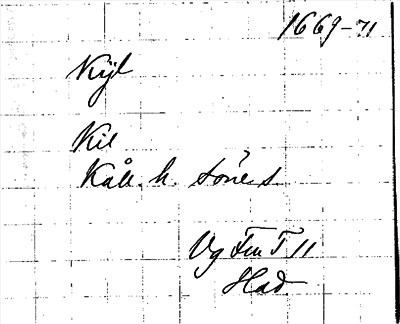 1669-71
Kijl
Kil
Kåll. h. Sörles
Vg Fru T 11
Had